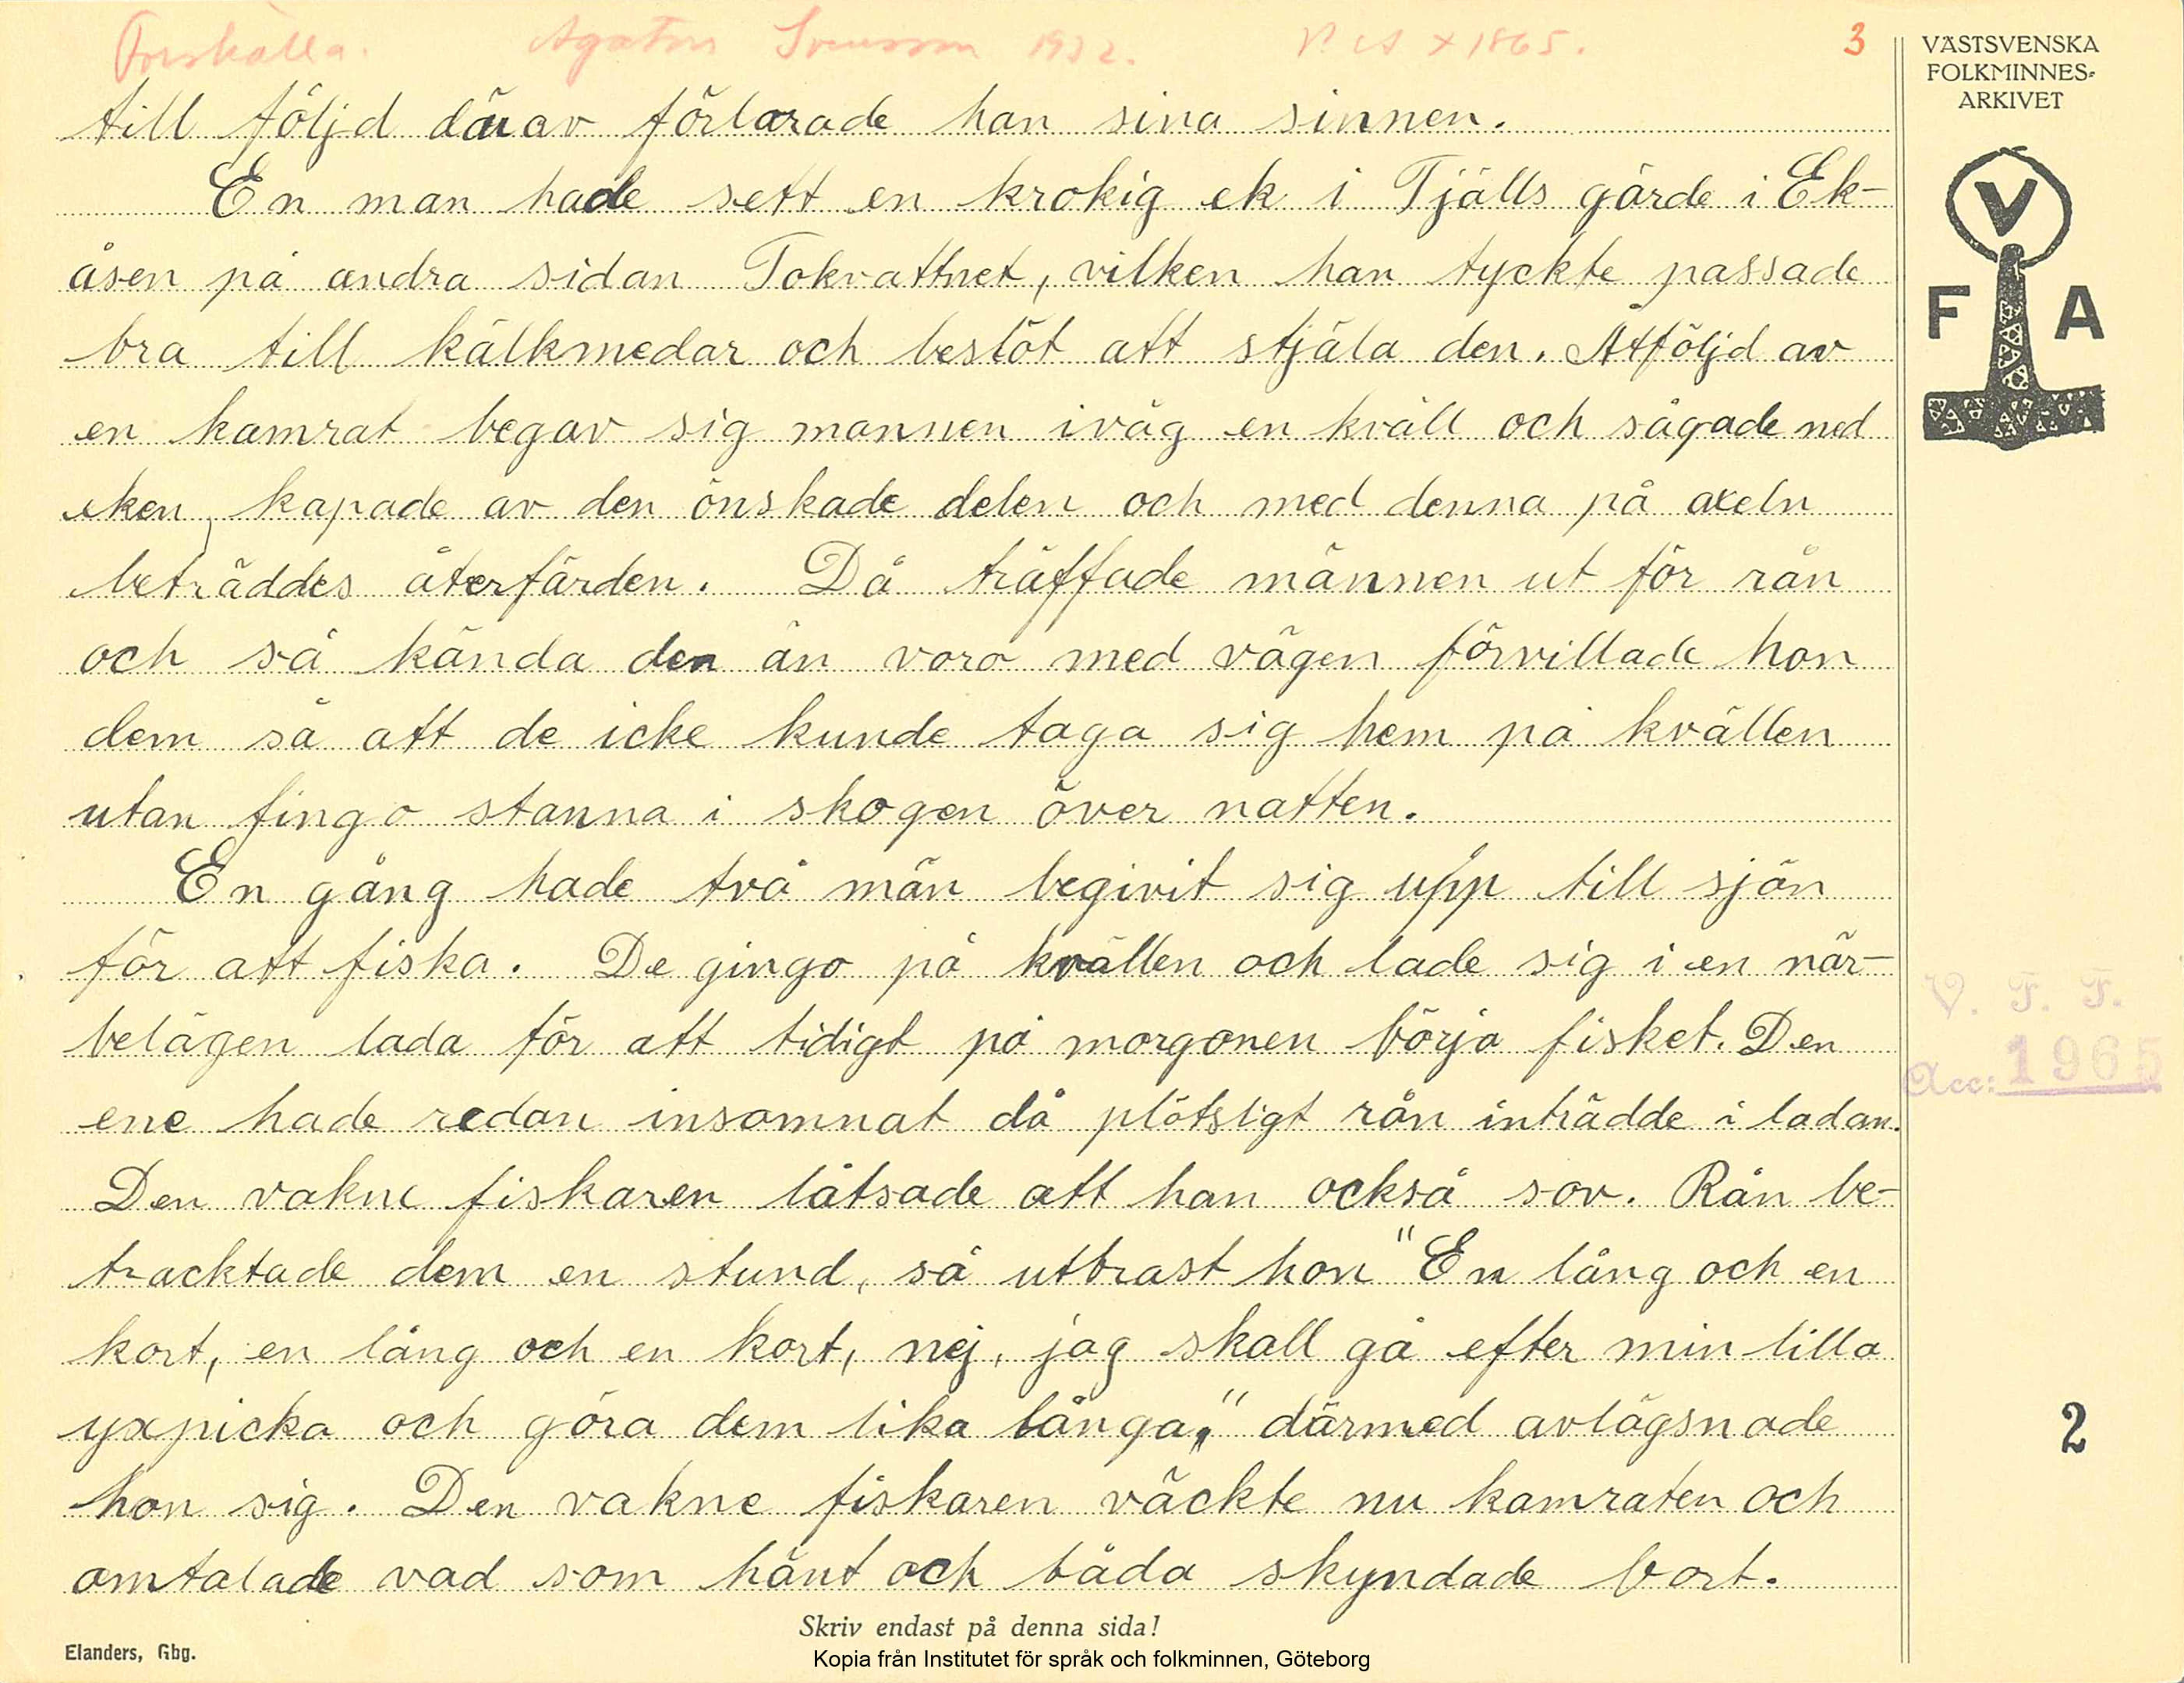 Agaton Svensson 1932. x 1865. 3
till följd därav förlorade han sina sinnen.
En man hade sett en krokig ek i Tjälls gärde i Ek-
åsen på andra sidan Tokvattnet, vilken han tyckte passade
bra till kälkmedar och beslöt att stjäla den. Åtföljd av
en kamrat begav sig mannen iväg en kväll och sågade ned
eken, kapade av den önskade delen och med denna på axeln
beträddes återfärden. Då träffade männen ut för rån
och så kända den än voro med vägen förvillade hon
dem så att de icke kunde taga sig hem på kvällen
utan fingo stanna i skogen över natten.
En gång hade två män begivit sig upp till sjön
för att fiska. De gingo på kvällen och lade sig i en när-
belägen lada för att tidigt på morgonen börja fisket. Den
ene hade redan insomnat då plötsligt rån inträdde i ladan.
Den vakne fiskaren låtsade att han också sov. Rån be-
tracktade dem en stund, så utbrast hon "En lång och en
kort, en lång och en kort, nej, jag skall gå efter min lilla
yxpicka och göra dem lika långa," därmed avlägsnade
hon sig. Den vakne fiskaren väckte nu kamraten och
omtalade vad som hänt och båda skyndade bort.
Skriv endast på denna sida!
Elanders, Gbg.
Kopia från Institutet för språk och folkminnen, Göteborg
VÄSTSVENSKA
FOLKMINNES-
ARKIVET
V
F A
V. F. F.
Acc: 1965
2